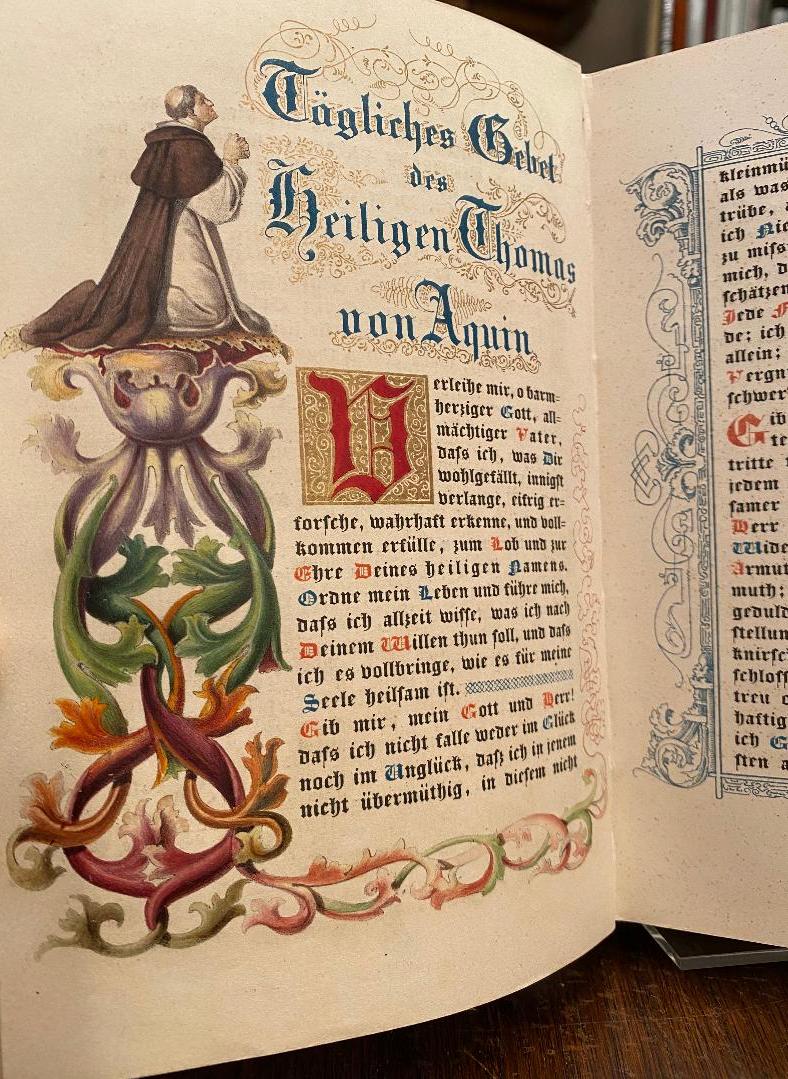 Tägliches Gebet
des
Heiligen Thomas
von Aquin
Verleihe mir, o barm=
herziger Gott, all=
mächtiger Vater,
daſs ich, was Dir
wohlgefällt, innigſt
verlange, eifrig er=
forſche, wahrhaft erkenne, und voll=
kommen erfülle, zum Lob und zur
Ehre Deines heiligen Namens.
Ordne mein Leben und führe mich,
daſs ich allzeit wiſſe, was ich nach
Deinem Willen thun ſoll, und daſs
ich es vollbringe, wie es für meine
Seele heilſam iſt.
Gib mir, mein Gott und Herr!
daſs ich nicht falle weder im Glück
noch im Unglück, daſs ich in jenem
nicht übermüthig, in dieſem nicht
kleinmü
als was
trübe,
ich
zu miſs
mich, d
ſchätzen
Jede
de; ich
allein;
Vergn
ſchwer
Gib
te
tritte
jedem
ſamer
Herr
Wide
Armut
muth;
geduld
ſtellun
knirſc
ſchloſſ
treu
haftig
ich G
ſten a